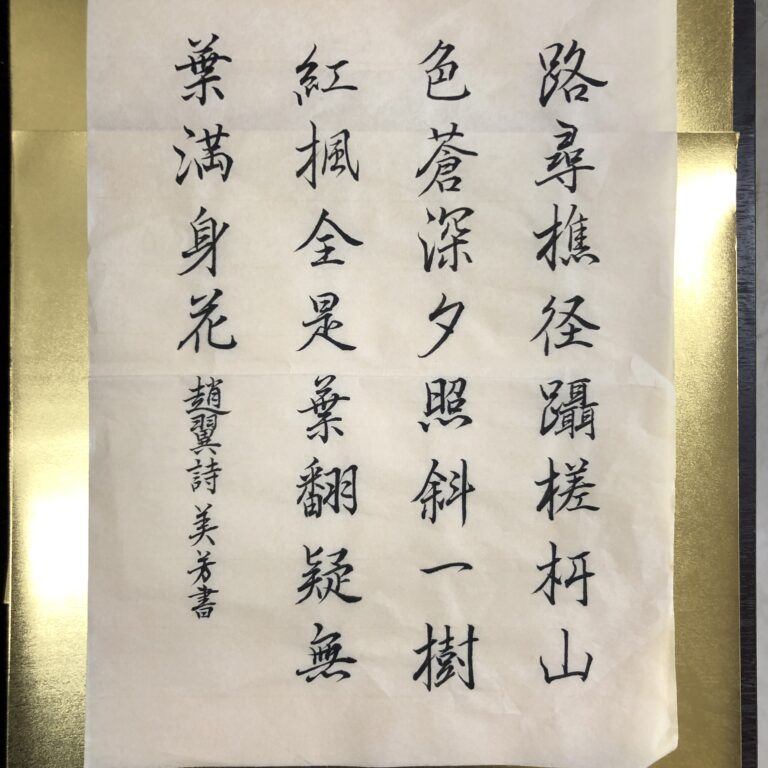 路尋樵径躡槎枒山
色蒼深夕照斜一樹
紅楓全是葉翻疑無
葉満身花
趙翼詩 美芳書